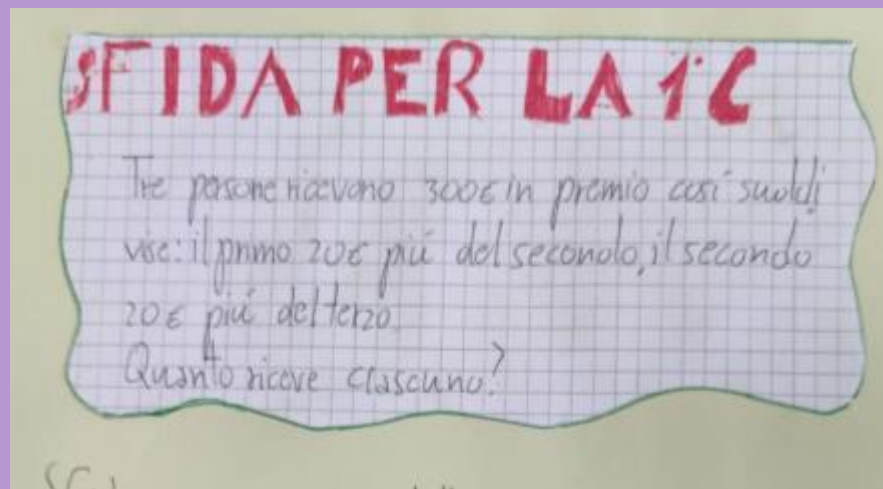 SFIDA PER LA 1°C
Tre persone ricevono 300€ in premio così suddi
vise: il primo 20€ più del secondo, il secondo
20€ più del terzo.
Quanto riceve ciascuno?